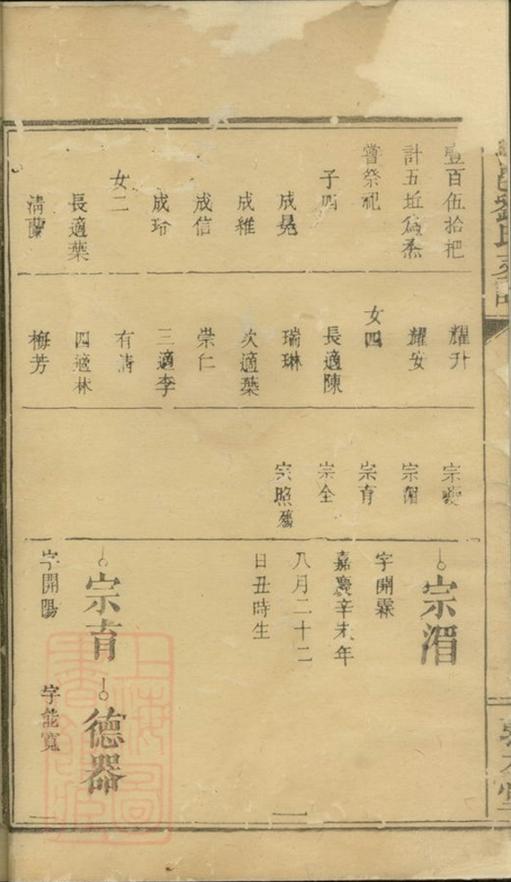 壹百伍拾把
計五坵為烝
嘗祭祀
子四
成晃
成維
成信
成珍
女二
長適葉
清蘭
耀升
耀安
女四
長適陳
瑞琳
次適葉
崇仁
三適李
有清
四適林
梅芳
宗變
宗湄
宗育
宗全
宗照殤
宗湄
字開霖
嘉慶辛未年
八月二十二
日丑時生
宗育
字開陽
德器
字能寬